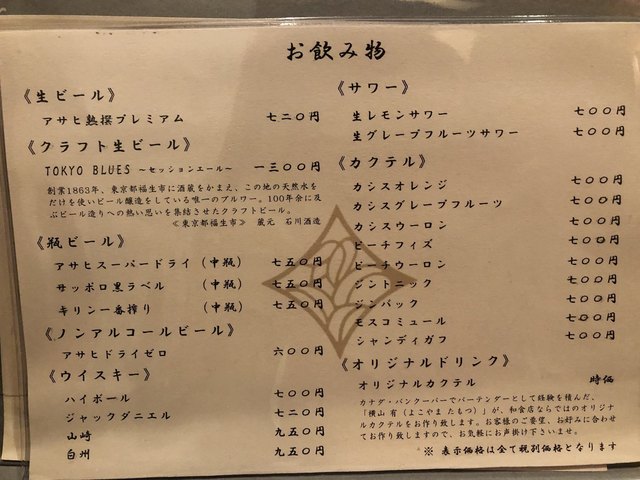 お飲み物
《生ビール》
アサヒ熟撰プレミアム 七二〇円
《クラフト生ビール》
TOKYO BLUES ～セッションエール～ 一三〇〇円
創業1863年、東京都福生市に酒蔵をかまえ、この地の天然水を
だけを使いビール醸造をしている唯一のブルワー。100年余に及
ぶビール造りへの熱い思いを集結させたクラフトビール。
≪東京都福生市≫ 蔵元 石川酒造
《瓶ビール》
アサヒスーパードライ (中瓶) 七五〇円
サッポロ黒ラベル (中瓶) 七五〇円
キリン一番搾り (中瓶) 七五〇円
《ノンアルコールビール》
アサヒドライゼロ 六〇〇円
《ウイスキー》
ハイボール 七〇〇円
ジャックダニエル 七二〇円
山崎 九五〇円
白州 九五〇円
《サワー》
生レモンサワー 七〇〇円
生グレープフルーツサワー 七〇〇円
《カクテル》
カシスオレンジ 七〇〇円
カシスグレープフルーツ 七〇〇円
カシスウーロン 七〇〇円
ピーチフィズ 七〇〇円
ピーチウーロン 七〇〇円
ジントニック 七〇〇円
ジンバック 七〇〇円
モスコミュール 七〇〇円
シャンディガフ 七〇〇円
《オリジナルドリンク》
オリジナルカクテル 時価
カナダ・バンクーバーでバーテンダーとして経験を積んだ、
「横山 有(よこやま たもつ)」が、和食店ならではのオリジナ
ルカクテルをお作り致します。お客様のご要望、お好みに合わせ
てお作り致しますので、お気軽にお声掛け下さいませ。
※ 表示価格は全て税別価格となります